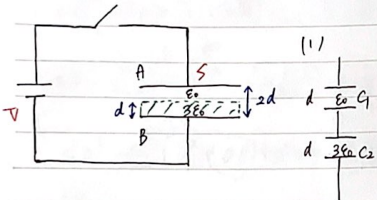 (1)
A
S
ε₀
d
3ε₀
2d
B
V
d
ε₀
C₁
d
3ε₀
C₂